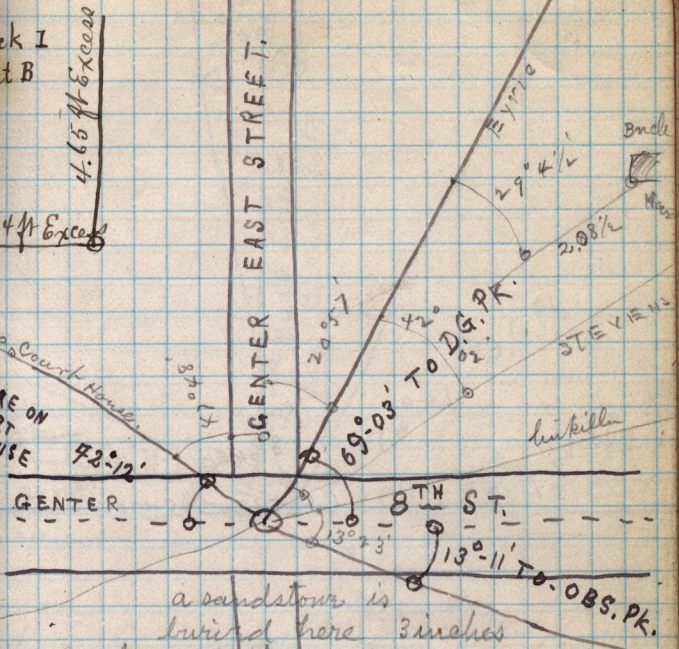 ck I
t B
4.65 ft Excess
4 ft Excess
GENTER EAST STREET.
Eyrie
29° 4½'
2.08½
STEVENS
42° 02'
20° 57'
69°-03' TO D.G.PK.
Court House
RE ON
RT
USE
72°-12'
GENTER
8TH ST.
13° 23'
13°-11' TO-OBS.PK.
a sandstone is
buried here 3inches